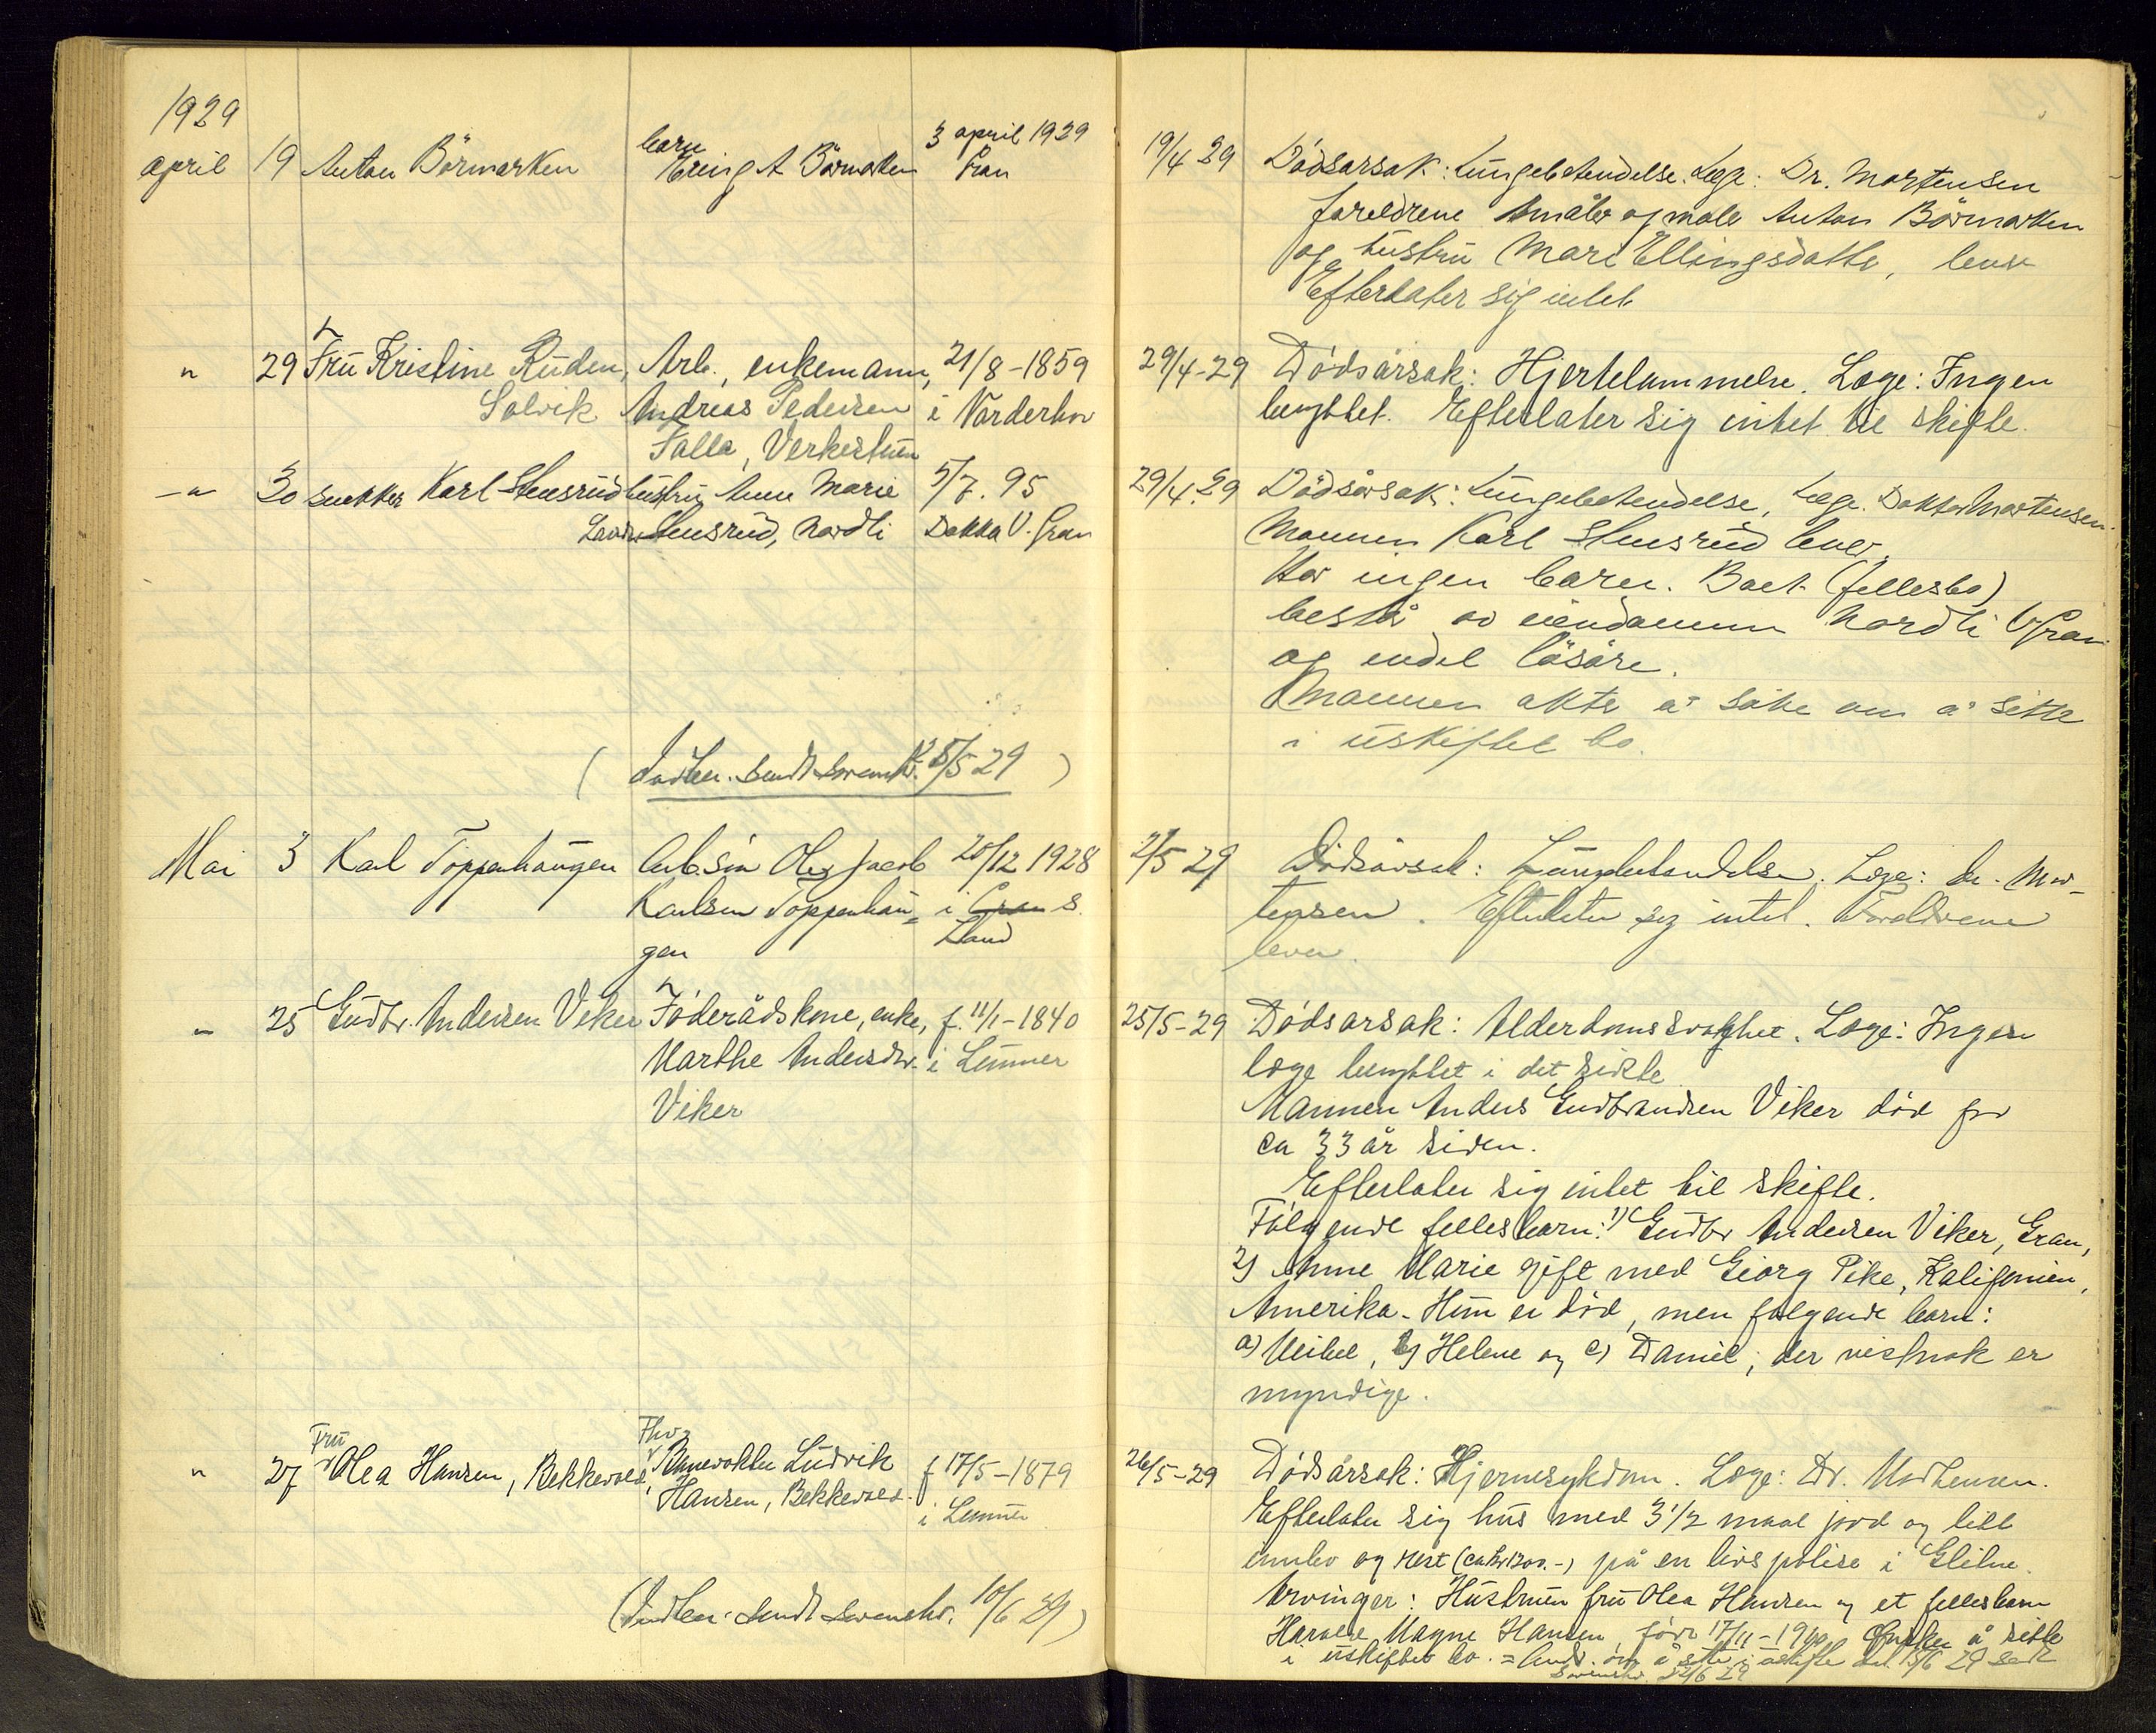 1929
april 19 Anton Börmarken
barn
Erling A Börmarken
3 april 1929
Gran
19/4 29 Dödsarsak: Lungebetendelse. Læge: Dr. Mortensen
foreldrene maler Anton Börmarken
og hustru Mari Ellingsdatte, lever
Efterlater sig intet
" 29 Fru Kristine Ruden, Solvik
Arb., enkemann,
Andreas Pedersen
Falla, Verkestuen
21/8-1859
i Norderhov
29/4-29 Dödsårsak: Hjertelammelse. Læge: Ingen
benyttet. Efterlater sig intet til skifte.
-"- 30 snekker Karl Stensrud
hustru Anne Marie
Stensrud, Nordli
5/7. 95
Dokka V. Gran
29/4. 29 Dödsårsak: Lungebetendelse, Læge. Doktor Mortensen.
Mannen Karl Stensrud lever.
Har ingen barn. Boet (fellesbo)
bestå av eiendommen Nordli V. Gran
og endel lösöre.
Mannen akter å söke om å sitte
i uskiftet bo.
(Indber. sendt sorenskr. 8/5 29)
Mai 3 Karl Toppenhaugen
Arb. sön Ole Jacob
Karlsen Toppenhau=
gen
20/12 1928
i Gran S.
Land
2/5 29 Dödsårsak: Lungebetendelse. Læge: dr. Mor-
tensen. Efterlater sig intet. Foreldrene
lever.
" 25 Gudbr. Andersen Viker
Föderådskone, enke,
Marthe Andersdtr.
Viker
f. 11/1-1840
i Lunner
25/5-29 Dödsarsak: Alderdomssvakhet. Læge: Ingen
læge benyttet i det siste
Mannen Anders Gudbrandsen Viker död for
ca 33 år siden.
Efterlater sig intet til skifte.
Fölgende fellesbarn: 1) Gudbr Andersen Viker, Gran,
2) Anne Marie gift med Georg Pike, Kalifornien,
Amerika. Hun er död, men følgende barn:
a) Meibel, b) Helene og c) Daniel, der vistnok er
myndige.
" 27 Fru Olea Hansen, Bekkevold,
Fhv.
Banevokter Ludvik
Hansen, Bekkevold.
f 17/5-1879
i Lunner
26/5-29 Dödsårsak: Hjernesykdom. Læge: Dr. Mortensen.
Efterlater sig hus med 3 1/2 maal jord og litt
innbo og rest (ca kr 1200.-) på en livspolise i Glitne.
Arvinger: Hustruen fru Olea Hansen og et fellesbarn
Harald Magne Hansen, född 17/11-1910. Önsker å sitte
i uskiftet bo. = Andr. om å sitte i uskifte dat. 15/6 29 sendt
Sorenskr. 22/6 29
(Indber. sendt sorenskr. 10/6 29)